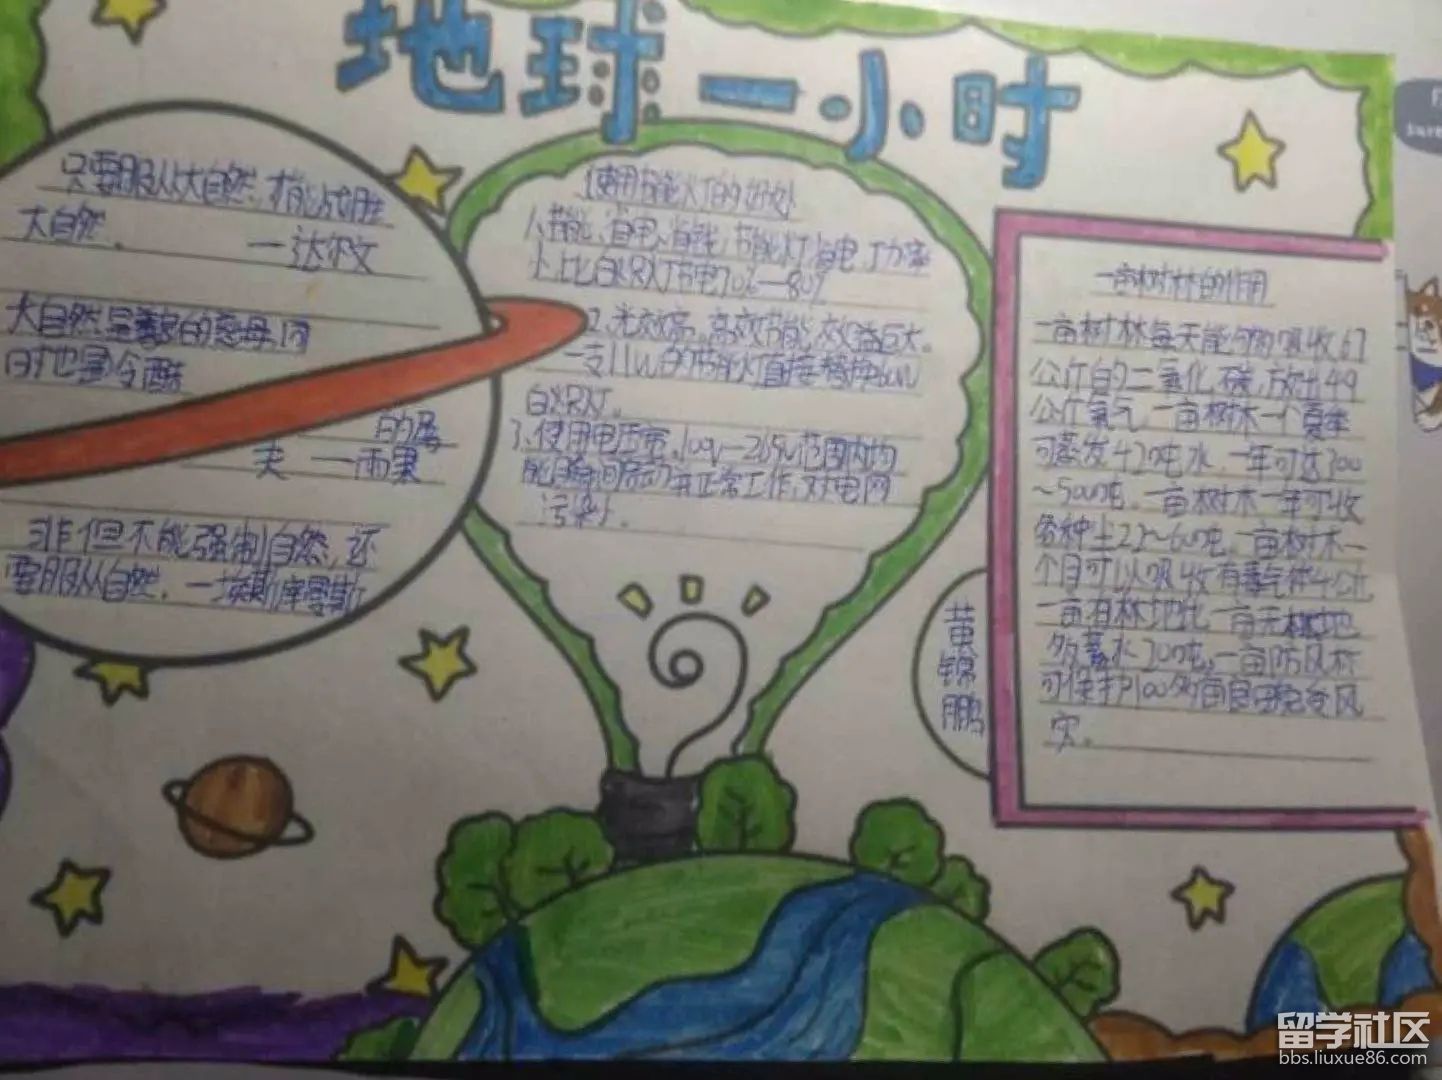 地球一小时
只要服从大自然，才能战胜
大自然。 一达尔文
大自然是善良的慈母，同
时也是冷酷
的屠
夫 一雨果
非但不能强制自然，还
要服从自然。一埃斯库罗斯
使用节能灯的好处
1、节能、省电、省钱，节能灯省电，功率
小，比白炽灯节电70%—80%
2、光效高，高效节能，效益巨大。
一支11w的节能灯直接替换60w
白炽灯。
3、使用电压宽，
范围内均
能瞬间启动并正常工作，对电网
污染小。
黄
锦
鹏
一亩树林的作用
一亩树林每天能够吸收67
公斤的二氧化碳，放出49
公斤氧气，一亩树木一个夏季
可蒸发420吨水，一年可达300
～500吨。一亩树木一年可收
各种尘22～60吨。一亩树木一
个月可以吸收有毒气体4公斤，
一亩有林地比一亩无林地
多蓄水20吨，一亩防风林
可保护100多亩良田免受风
灾。
留学社区
bbs.liuxue86.com